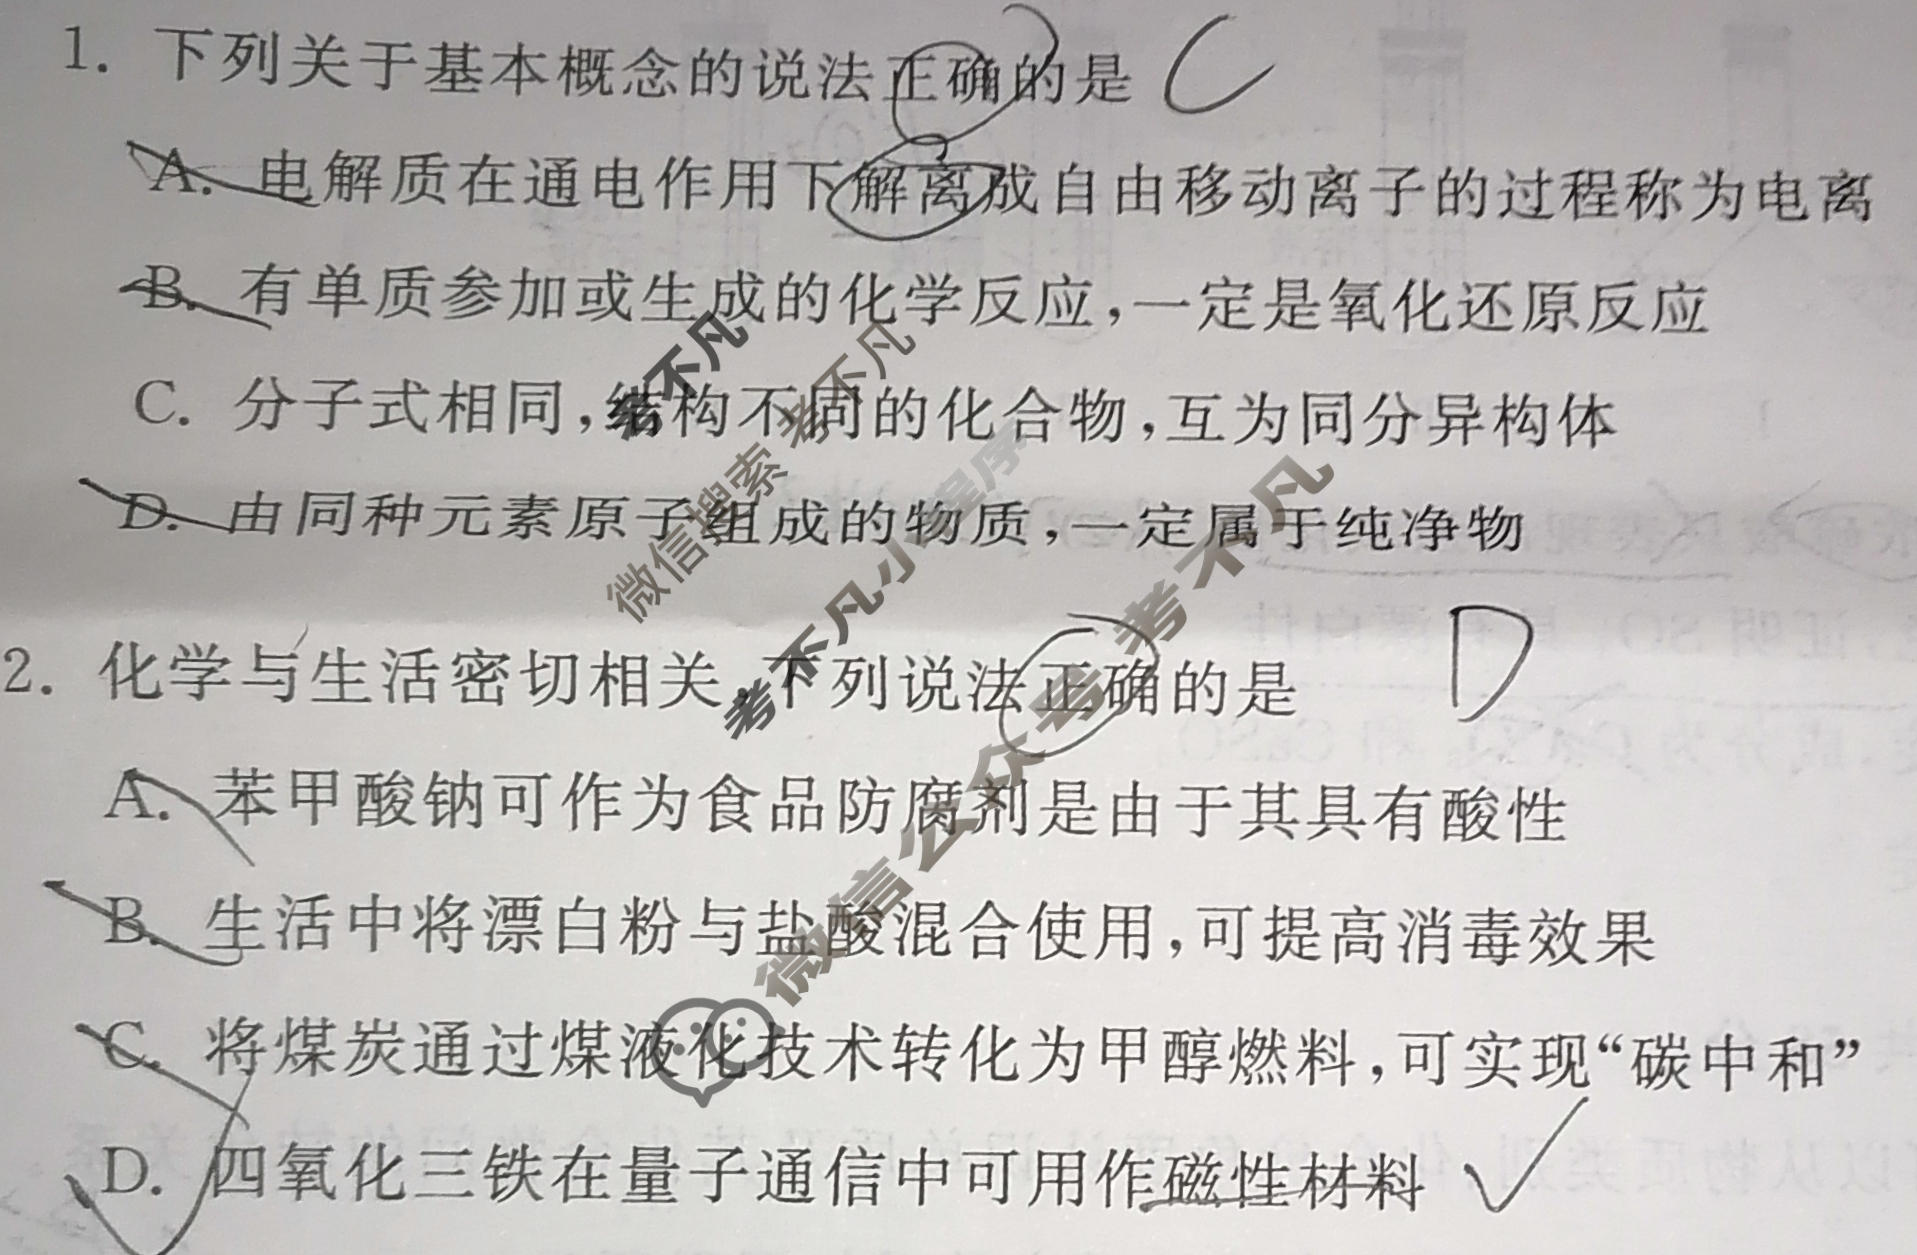 1. 下列关于基本概念的说法正确的是 C
A. 电解质在通电作用下解离成自由移动离子的过程称为电离
B. 有单质参加或生成的化学反应,一定是氧化还原反应
C. 分子式相同,结构不同的化合物,互为同分异构体
D. 由同种元素原子组成的物质,一定属于纯净物
2. 化学与生活密切相关,下列说法正确的是 D
A. 苯甲酸钠可作为食品防腐剂是由于其具有酸性
B. 生活中将漂白粉与盐酸混合使用,可提高消毒效果
C. 将煤炭通过煤液化技术转化为甲醇燃料,可实现“碳中和”
D. 四氧化三铁在量子通信中可用作磁性材料
考不凡
微信搜索 考不凡
考不凡小程序
微信公众号 考不凡